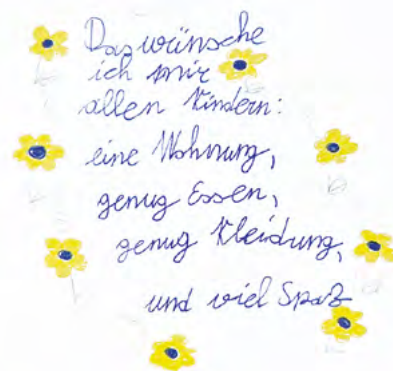 Das wünsche
ich mir
allen Kindern:
eine Wohnung,
genug Essen,
genug Kleidung,
und viel Spaß